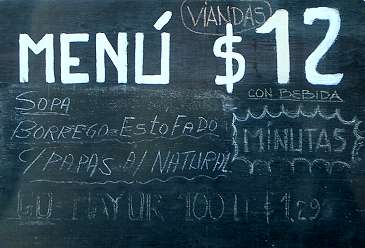 VIANDAS
MENÚ $12
CON BEBIDA
SOPA
BORREGO-ESTOFADO
C/PAPAS A/ NATURAL
MINUTAS
100